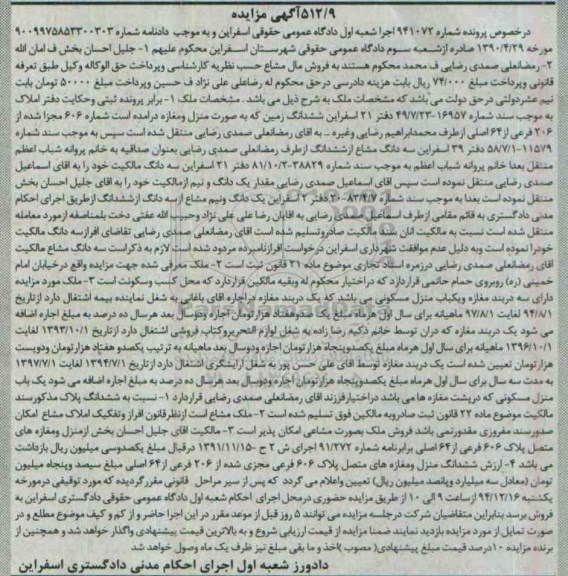 ۵۱۲/۹آگهی مزایده
درخصوص پرونده شماره ۹۴۱۰۷۲ اجرا شعبه اول دادگاه عمومی حقوقی اسفراین و به موجب دادنامه شماره ۹۰۰۹۹۷۵۸۵۳۳۰۰۳۰۳
مورخه ۱۳۹۰/۴/۲۹ صادره ازشعبه سوم دادگاه عمومی حقوقی شهرستان اسفراین محکوم علیهم ۱- جلیل احسان بخش ف امان الله
۲- رمضانعلی صمدی رضایی ف محمد محکوم هستند به فروش مال مشاع حسب نظریه کارشناسی وپرداخت حق الوکاله وکیل طبق تعرفه
قانونی وپرداخت مبلغ ۷۴/۰۰۰ ریال بابت هزینه دادرسی درحق محکوم له رضاعلی علی نژاد ف حسین وپرداخت مبلغ ۵۰۰۰۰ تومان بابت
نیم عشردولتی درحق دولت می باشد که مشخصات ملک به شرح ذیل می باشد . مشخصات ملک ۱- برابر پرونده ثبتی وحکایت دفتر املاک
به موجب سند شماره ۱۶۹۵۷-۴۹/۷/۲۳ دفتر ۲۱ اسفراین ششدانگ زمین که به صورت منزل ومغازه درامده است شماره ۶۰۶ مجزا شده از
۲۰۶ فرعی از ۶۴ اصلی ازطرف محمدابراهیم رضایی وغیره .. به اقای رمضانعلی صمدی رضایی منتقل شده است سپس به موجب سند شماره
۱۱۵۷۹-۵۸/۷/۱ دفتر ۳۹ اسفراین سه دانگ مشاع ازششدانگ ازطرف رمضانعلی صمدی رضایی بعنوان صداقیه به خانم پروانه شباب اعظم
منتقل بعدا خانم پروانه شباب اعظم به موجب سند شماره ۳۸۸۲۹-۸۱/۱۰/۲ دفتر ۲۱ اسفراین سه دانگ مالکیت خود را به اقای اسماعیل
صمدی رضایی منتقل نموده است سپس اقای اسماعیل صمدی رضایی مقدار یک دانگ و نیم ازمالکیت خود را به اقای جلیل احسان بخش
منتقل نموده است بعدا به موجب سند شماره ۲۰-۸۳/۴/۷ دفتر ۲ اسفراین یک دانگ ونیم مشاع ازسه دانگ ازششدانگ ازطریق اجرای احکام
مدنی دادگستری به قائم مقامی ازطرف اسماعیل صمدی رضایی به اقایان رضا علی علی نژاد وحبیب الله عفتی دخت بلمناصفه از مورد معامله
منتقل شده است نسبت به مالکیت انان سند مالکیت صادروتسلیم شده است اقای رمضانعلی صمدی رضایی تقاضای افرازسه دانگ مالکیت
خودرا نموده است وبه دلیل عدم موافقت شهرداری اسفراین درخواست افرازنامبرده مردود شده است لازم به ذکراست سه دانگ مشاع مالکیت
اقای رمضانعلی صمدی رضایی درزمره اسناد تجاری موضوع ماده ۲۱ قانون ثبت است ۲- ملک معرفی شده جهت مزایده واقع درخیابان امام
خمینی (ره) روبروی حمام حاتمی قراردارد که دراختیار محکوم له وبقیه مالکین قراردارد که محل کسب وسکونت است ۳- ملک مورد مزایده
دارای سه دربند مغازه ویکباب منزل مسکونی می باشد که یک دربند مغازه دراجاره اقای باغانی به شغل نماینده بیمه اشتغال دارد ازتاریخ
۹۴/۸/۱ لغایت ۹۷/۸/۱ ماهیانه برای سال اول هرماه مبلغ یک صدوهفتاد هزارتومان اجاره ودوسال بعد هرسال ده درصد به مبلغ اجاره اضافه
می شود یک دربند مغازه که دران توسط خانم ذکیه رضا زاده به شغل لوازم التحریروکتاب فروشی اشتغال دارد ازتاریخ ۱۳۹۳/۱۰/۱ لغایت
۱۳۹۶/۱۰/۱ ماهیانه برای سال اول هرماه مبلغ یکصدوپنجاه هزارتومان اجاره ودوسال بعد ماهیانه به ترتیب یکصدو هفتاد هزارتومان ودویست
هزارتومان تعیین شده است یک دربند مغازه توسط اقای علی حسن پور به شغل ارایشگری اشتغال دارد ازتاریخ ۱۳۹۴/۷/۱ لغایت ۱۳۹۷/۷/۱
به مدت سه سال برای سال اول هرماه مبلغ یکصدوپنجاه هزارتومان اجاره ودوسال بعد هرسال ده درصد به مبلغ اجاره اضافه می شود یک باب
منزل مسکونی که درپشت مغازه ها می باشد دراختیارفرزند اقای رمضانعلی صمدی رضایی قراردارد ۱- نسبت به ششدانگ پلاک مذکورسند
مالکیت موضوع ماده ۲۲ قانون ثبت صادروبه مالکین فوق تسلیم شده است ۲- ملک مشاع است ازنظرقانون افراز وتفکیک املاک مشاع امکان
صدورسند مفروزی مقدورنمی باشد فروش ملک بصورت مشاعی امکان پذیر است ۳- مالکیت اقای جلیل احسان بخش ازمنزل ومغازه های
متصل پلاک ۶۰۶ فرعی از۶۴ اصلی برابرنامه شماره ۹۱/۲۷۲ اجرای ش ۲ ح -۱۳۹۱/۱۱/۱۵ درقبال مبلغ یکصدوسی میلیون ریال بازداشت
می باشد ۴- ارزش ششدانگ منزل ومغازه های متصل پلاک ۶۰۶ فرعی مجزی شده از ۲۰۶ فرعی از۶۴ اصلی مبلغ سیصد وپنجاه میلیون
تومان (معادل سه میلیارد وپانصد میلیون ریال) تعیین واعلام می گردد که پس از سیر مراحل قانونی مقررگردیده که مورد توقیفی درمورخه
یکشنبه ۹۴/۱۲/۱۶ ازساعت ۹ الی ۱۰ از طریق مزایده حضوری درمحل اجرای احکام شعبه اول دادگاه عمومی حقوقی دادگستری اسفراین به
فروش برسد بنابراین متقاضیان شرکت درجلسه مزایده می توانند ۵ روز قبل از موعد مقرر در این اجرا حاضر و از کم و کیف موضوع مطلع و در
صورت تمایل از مورد مزایده بازدید نمایند ضمنا مزایده از قیمت ارزیابی شروع و به بالاترین قیمت پیشنهادی واگذار خواهد شد و همچنین از
برنده مزایده ۱۰درصد قیمت مبلغ پیشنهادی( مصوب )اخذ و ما بقی مبلغ نیز ظرف یک ماه وصول خواهد شد
دادورز شعبه اول اجرای احکام مدنی دادگستری اسفراین